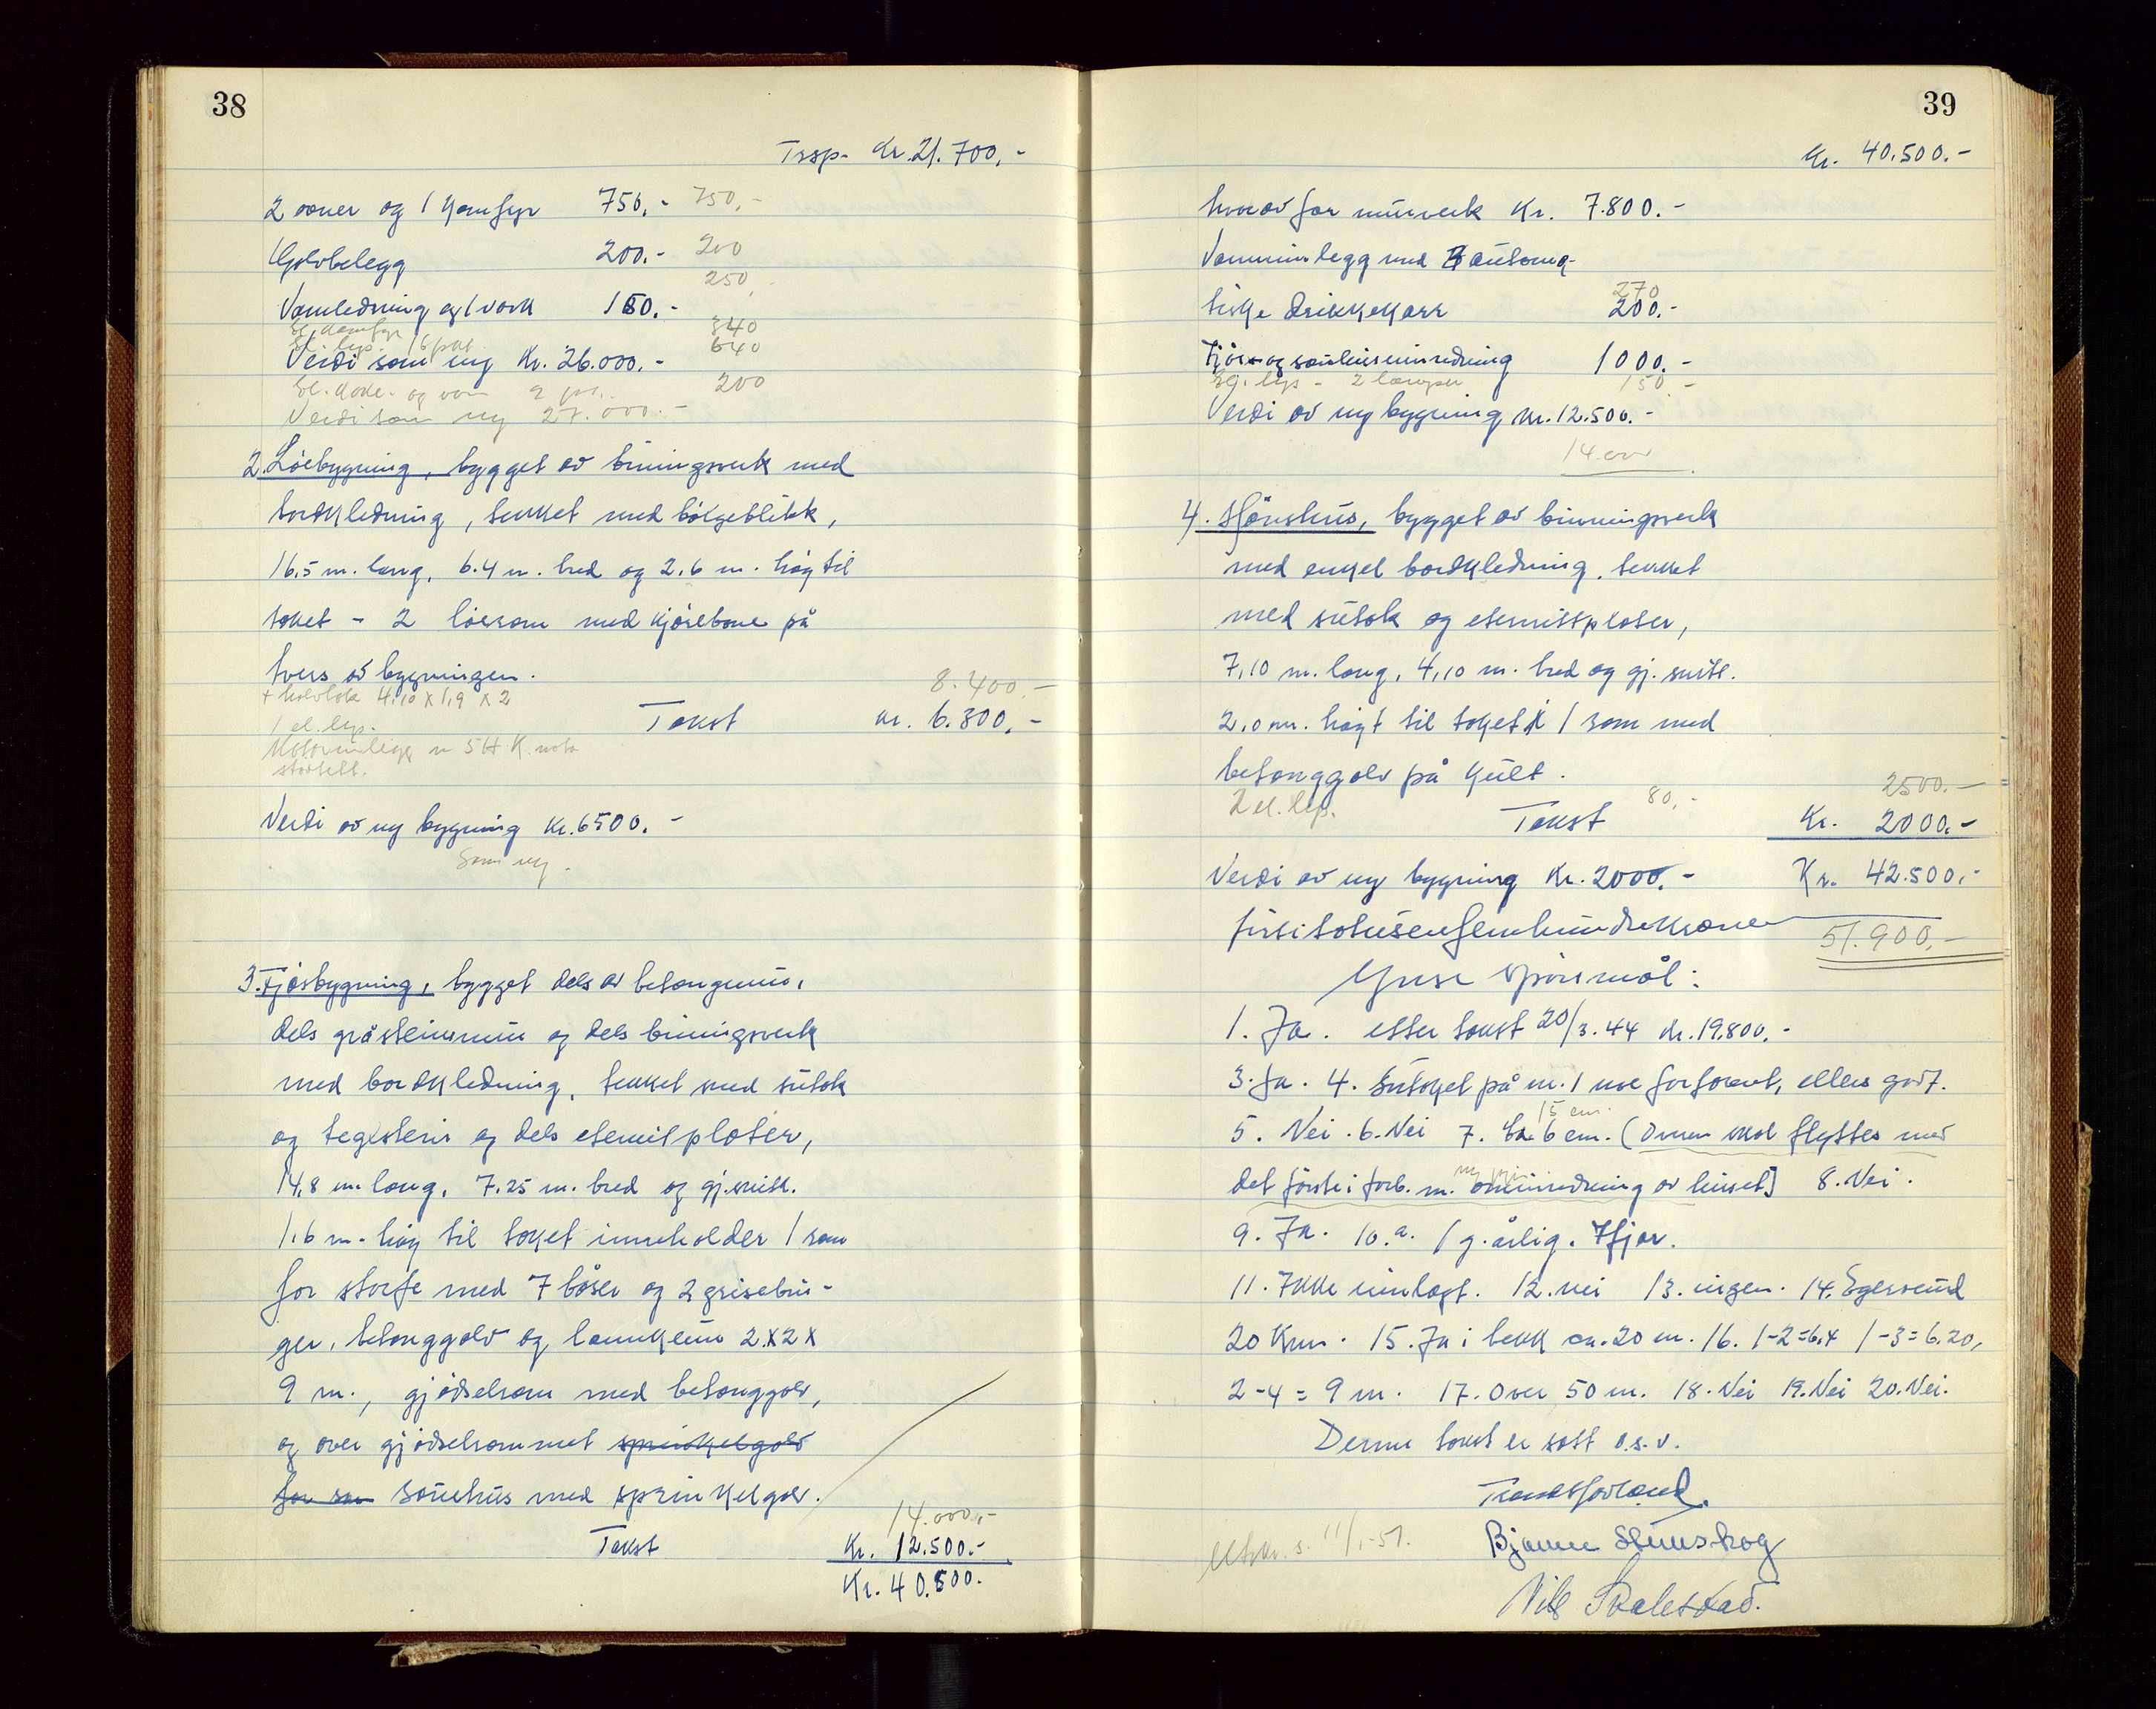 38
Trsp. Kr. 21.700,-
2 ovner og 1 komfyr 750,- 750,-
Golvbelegg 200.- 200
250,-
Vannledning og 1 vask 150.-
El. komfyr 340
El. lys. 16 pkt 640
Verdi som ny Kr. 26.000.-
El. koke- og 2 200
Verdi som ny 27.000.-
2. Löebygning, bygget av binningsverk med
bordkledning, tekket med bölgeblikk,
16,5 m. lang, 6.4 m. bred og 2.6 m. høg til
taket - 2 löerom med kjörebane på
tvers av bygningen.
+ halvtak 4,10 x 1,9 x 2
8.400.-
1 el. lys.
Takst Kr. 6.300,-
Motorinnlegg m 5 H.K. motor
Verdi av ny bygning Kr. 6500.-
Som ny.
3. Fjösbygning, bygget dels av betongmur,
dels gråsteinsmur og dels binningsverk
med bordkledning, tekket med sutak
og teglstein og dels eternitplater,
14,8 m. lang, 7.25 m. bred og gj.snitt.
1,6 m. høg til taket inneholder 1 rom
for storfe med 7 båser og 2 grisebin-
ger, betonggolv og landkum 2 x 2 x
9 m., gjödselrom med betonggolv,
og over gjödselrommet sprinkelgolv
for sau sauehus med sprinkelgolv.
14.000,-
Takst Kr. 12.500.-
Kr. 40.500.
39
Kr. 40.500.-
hvorav for murverk Kr. 7.800.-
Vanninnlegg med 3 automa-
270
tiske drikkekarr 200.-
Fjös- og sauhusinnredning 1000.-
El. lys - 2 lamper 150.-
Verdi av ny bygning Kr. 12.500.-
14.000
4. Hönsehus, bygget av binningsverk
med enkel bordkledning, tekket
med sutak og eternittplater,
7,10 m. lang, 4,10 m. bred og gj. snitt.
2,0 m. høgt til taket 1 rom med
betonggolv på kult.
2500.-
2 el. lys. 80,-
Takst Kr. 2000.-
Verdi av ny bygning Kr. 2000.- Kr. 42.500,-
førtitotusenfemhundrekroner
51.900,-
Ymse spörsmål:
1. Ja. etter takst 20/3.44 Kr. 19.800.-
3. Ja. 4. Sutaket på nr. 1 noe forfarent, ellers godt.
15 cm.
5. Nei. 6. Nei 7. ca 6 cm. (Ovnen skal flyttes med
ny
det förste i forb. m. ominnredning av huset) 8. Nei.
9. Ja. 10. a. 1 g. årlig. I fjor.
11. Ikke innlagt. 12. nei 13. ingen. 14. Egersund
20 Km. 15. Ja i bekk ca. 20 m. 16. 1-2=6,4 1-3=6.20,
2-4=9 m. 17. Over 50 m. 18. Nei 19. Nei 20. Nei.
Denne takst er satt o.s.v.
Utskr. s. 11/1-51.
Bjarne Slimskog
Nils Skalestad.